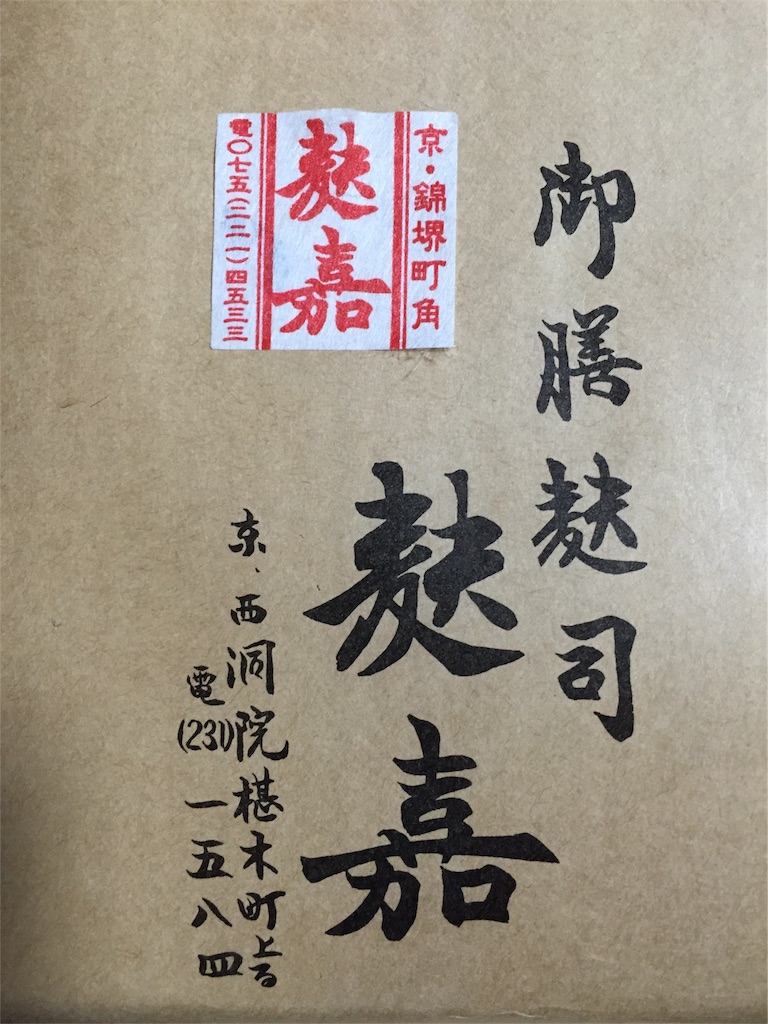 御膳麩司
麩嘉
京、西洞院椹木町上る
電(231)一五八四
京・錦堺町角
麩嘉
電〇七五(二二一)四五三三